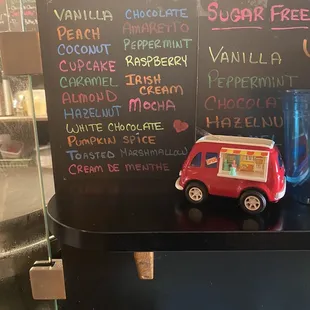 VANILLA
PEACH
COCONUT
CUPCAKE
CARAMEL
ALMOND
HAZELNUT
WHITE CHOCOLATE
PUMPKIN SPICE
TOASTED MARSHMALLOW
CREAM DE MENTHE
CHOCOLATE
AMARETTO
PEPPERMINT
RASPBERRY
IRISH
CREAM
MOCHA
SUGAR FREE
VANILLA
PEPPERMINT